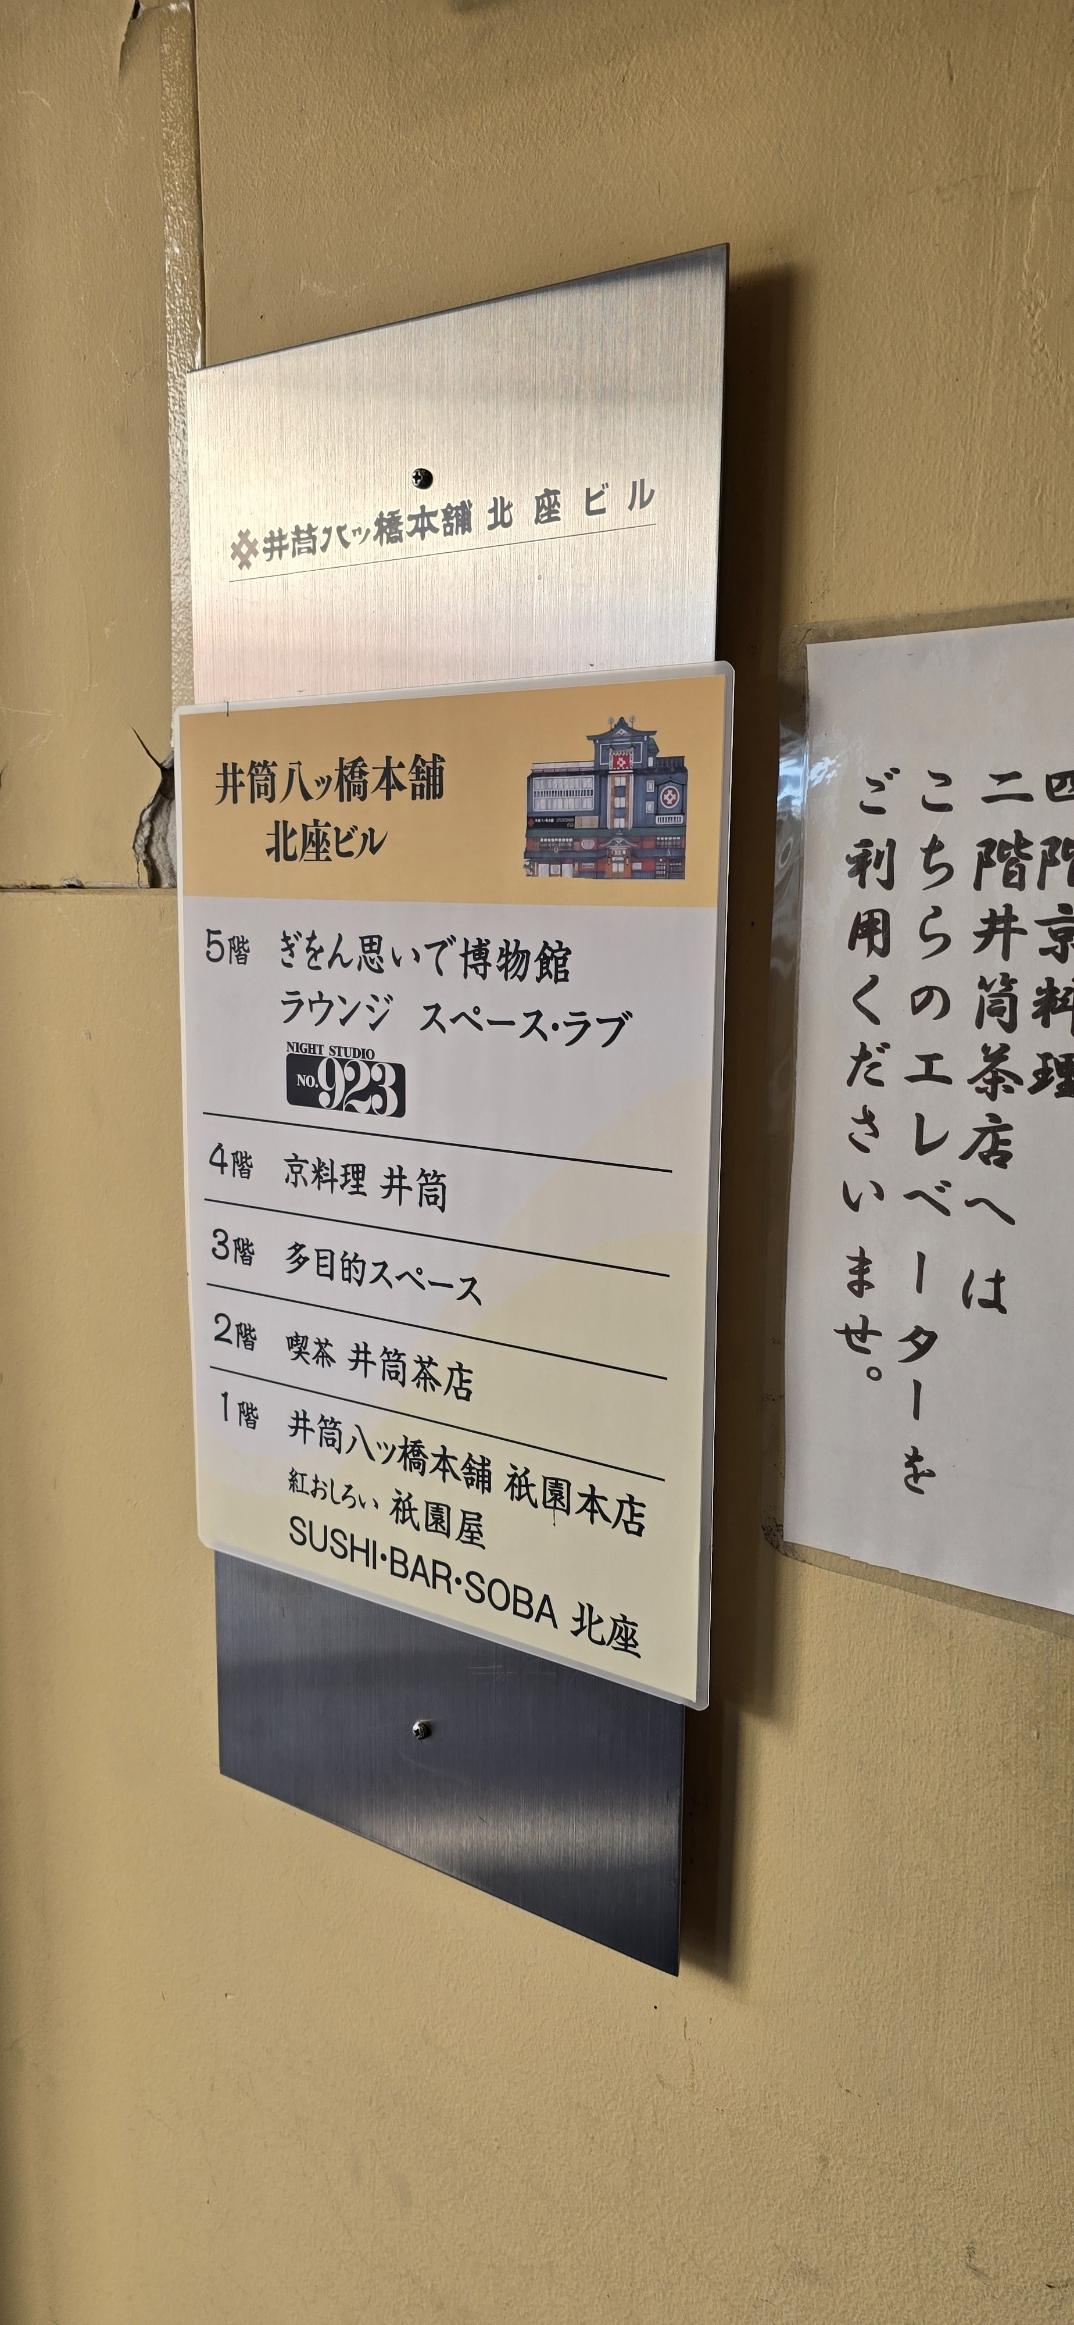 井筒八ッ橋本舗 北座ビル
井筒八ッ橋本舗
北座ビル
5階 ぎをん思いで博物館
ラウンジ スペース・ラブ
NIGHT STUDIO
NO.923
4階 京料理 井筒
3階 多目的スペース
2階 喫茶 井筒茶店
1階 井筒八ッ橋本舗 祇園本店
紅おしろい 祇園屋
SUSHI・BAR・SOBA 北座
四階京料理
二階井筒茶店へは
こちらのエレベーターを
ご利用くださいませ。